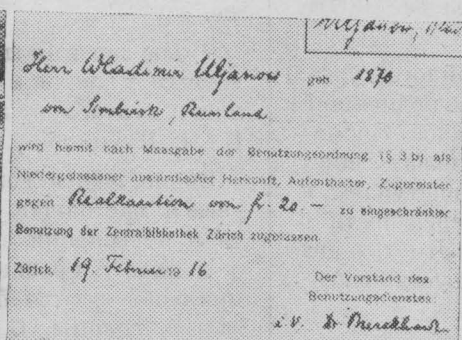 Uljanow, Wlad
Herr Wladimir Uljanow geb. 1870
von Simbirsk, Russland
wird hiemit nach Maasgabe der Benutzungsordnung (§ 3 b) als
Niedergelassener ausländischer Herkunft, Aufenthalter, Zugereister
gegen Realkaution von fr. 20.— zu eingeschränkter
Benutzung der Zentralbibliothek Zürich zugelassen.
Zürich, 19. Februar 1916.
Der Vorstand des
Benutzungsdienstes:
i. V. Dr. Burckhardt